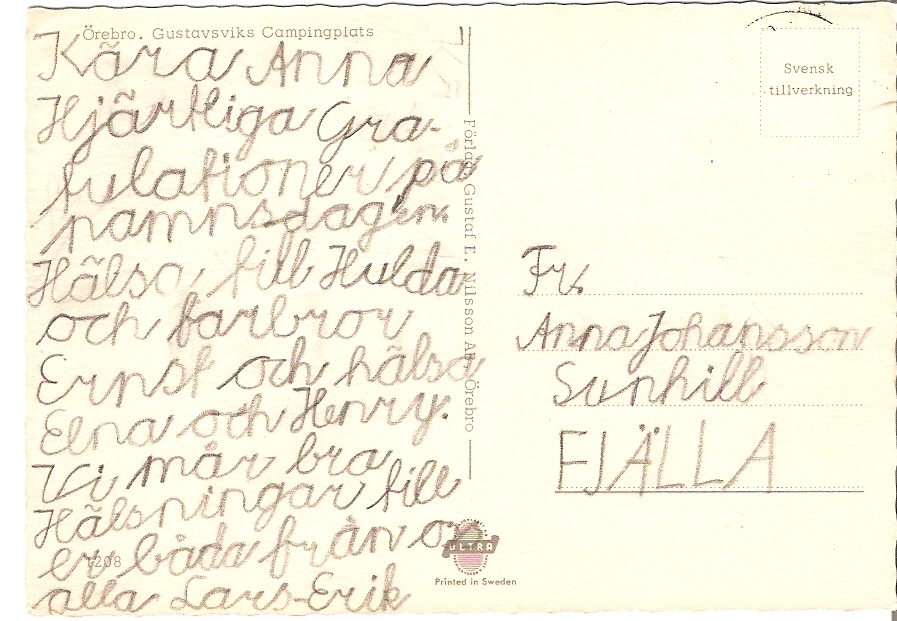 Örebro. Gustavsviks Campingplats
Kära Anna
Hjärtliga Gra-
tulationer på
namnsdagen.
Hälsa till Hulda
och farbror
Ernst och hälsa
Elna och Henry.
Vi mår bra
Hälsningar till
er båda från os
alla Lars-Erik
1208
Förlag Gustaf E. Nilsson AB, Örebro
ULTRA
Printed in Sweden
Svensk
tillverkning
Fr.
Anna Johansson
Sunhill
FJÄLLA